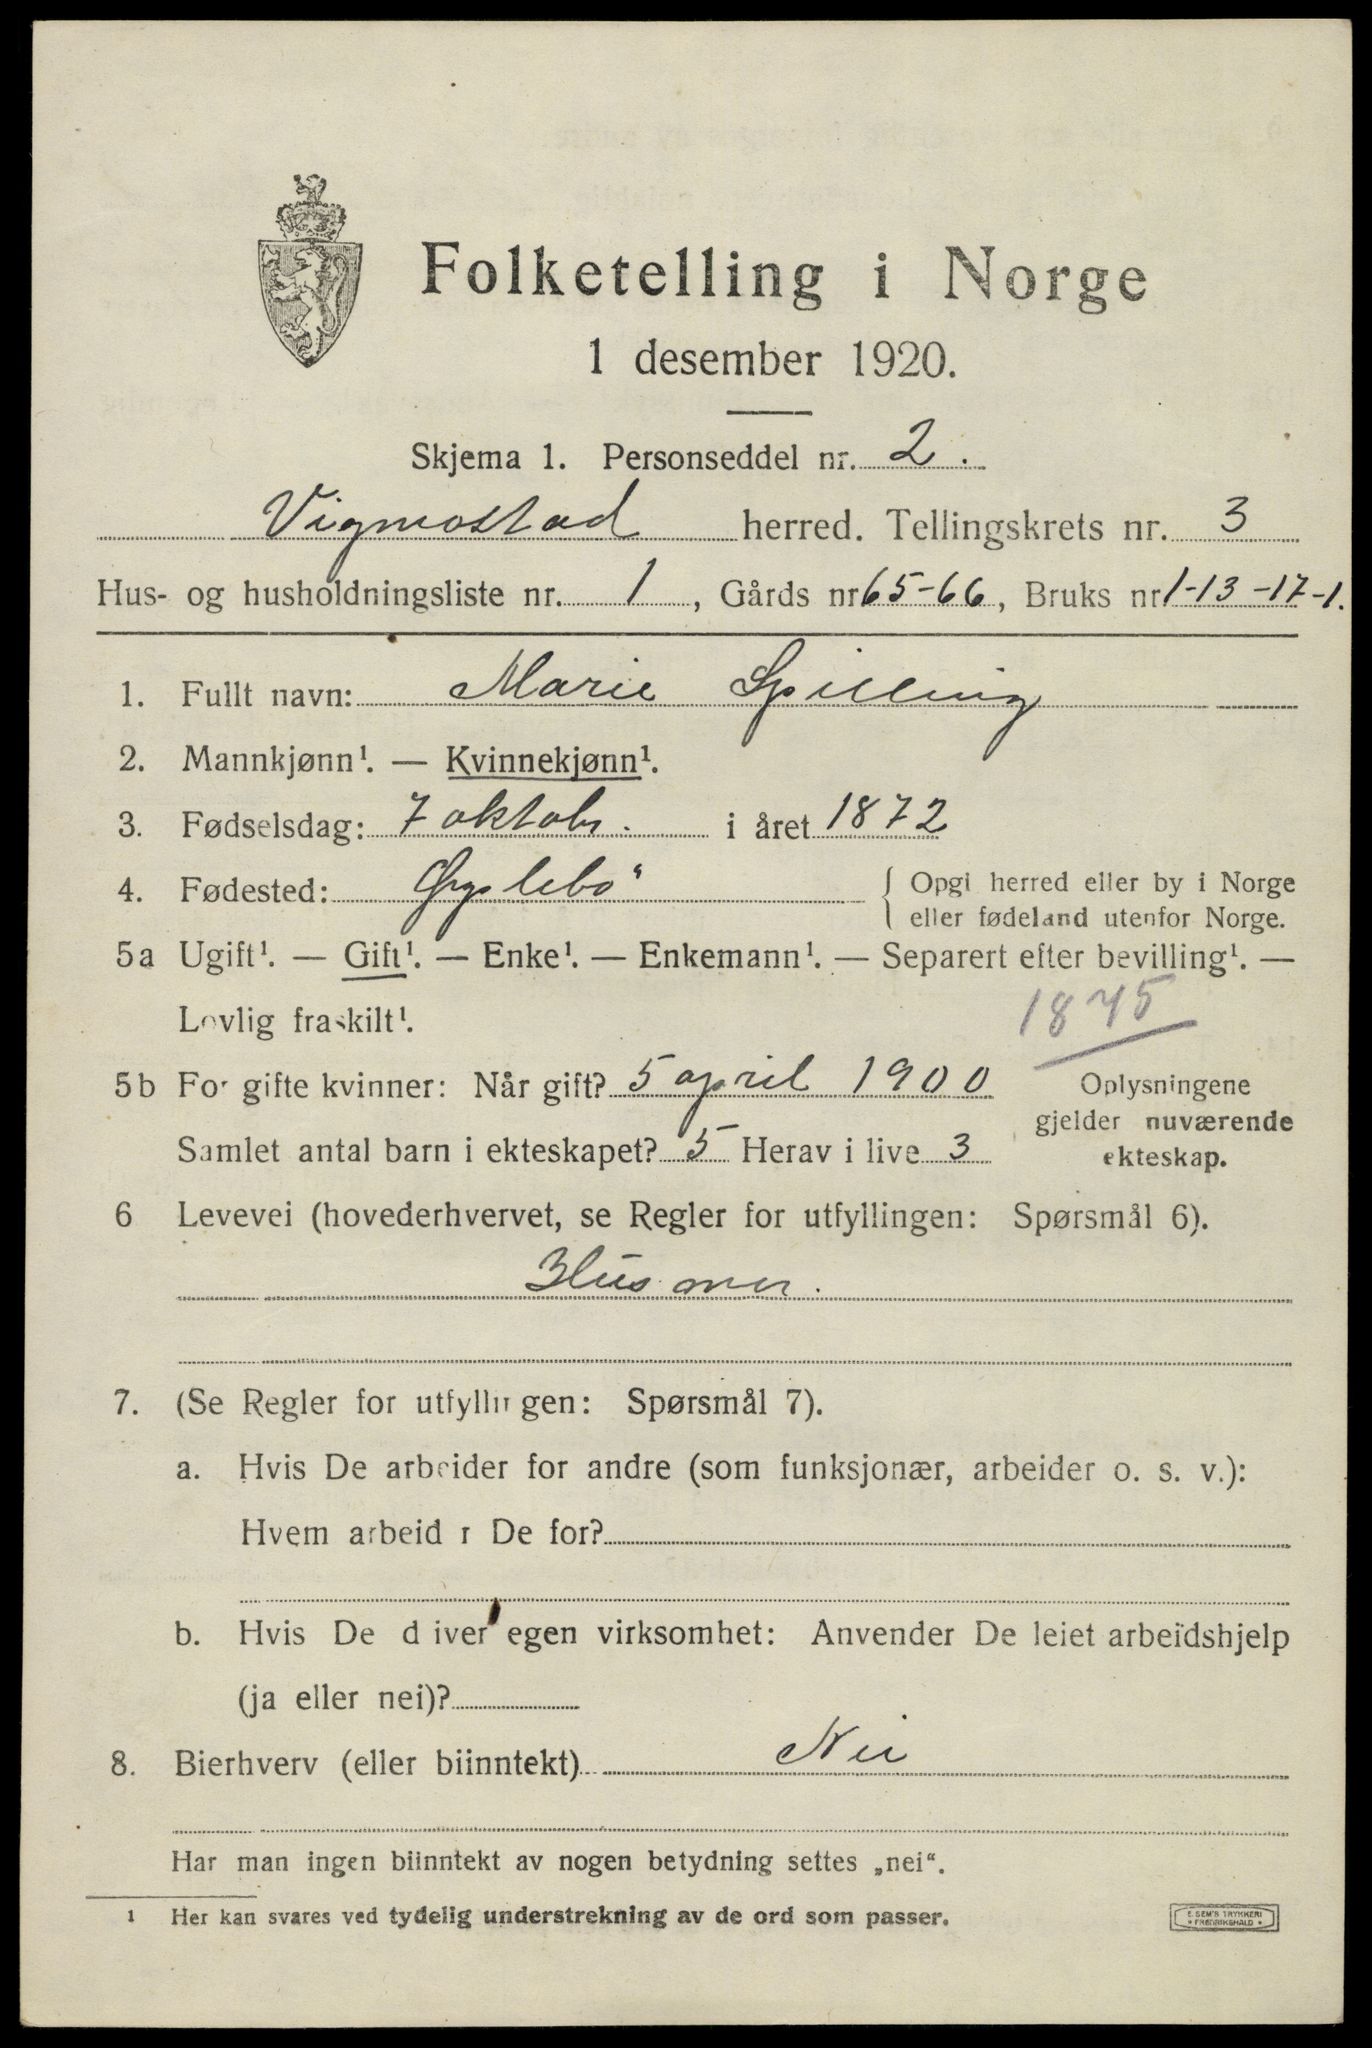 Folketelling i Norge
1 desember 1920.
Skjema 1. Personseddel nr. 2.
Vigmostad herred. Tellingskrets nr. 3
Hus- og husholdningsliste nr. 1, Gårds nr 65-66, Bruks nr 1-13-17-1.
1. Fullt navn: Marie Spilling
2. Mannkjønn¹. — Kvinnekjønn¹.
3. Fødselsdag: 7 oktobr. i året 1872
4. Fødested: Øyslebø { Opgi herred eller by i Norge
eller fødeland utenfor Norge.
5a Ugift¹. — Gift¹. — Enke¹. — Enkemann¹. — Separert efter bevilling¹. —
Lovlig fraskilt¹.
1845
5b For gifte kvinner: Når gift? 5 april 1900
Samlet antal barn i ekteskapet? 5 Herav i live 3
Oplysningene
gjelder nuværende
ekteskap.
6 Levevei (hovederhvervet, se Regler for utfyllingen: Spørsmål 6).
Husmor.
7. (Se Regler for utfyllingen: Spørsmål 7).
a. Hvis De arbeider for andre (som funksjonær, arbeider o. s. v.):
Hvem arbeid r De for?
b. Hvis De d iver egen virksomhet: Anvender De leiet arbeidshjelp
(ja eller nei)?
8. Bierhverv (eller biinntekt) Nei
Har man ingen biinntekt av nogen betydning settes „nei“.
¹ Her kan svares ved tydelig understrekning av de ord som passer.
E. SEM'S TRYKKERI
* FREDRIKSHALD *